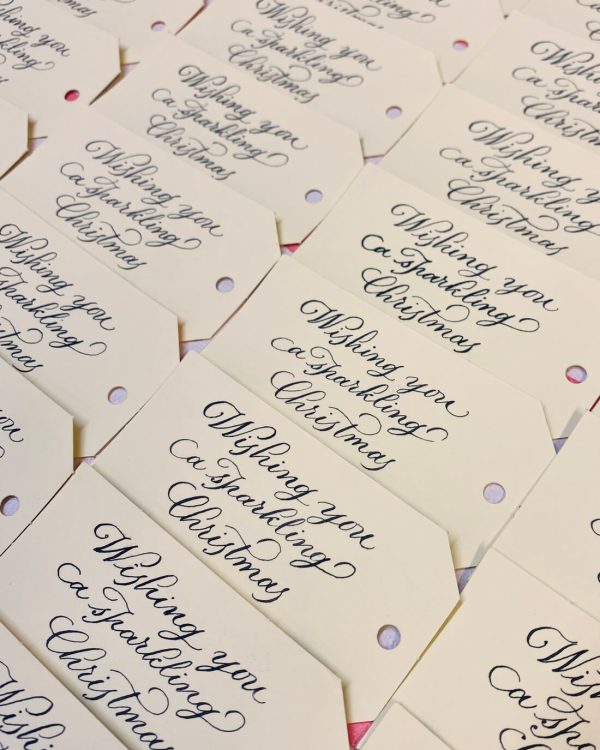 Wishing you
a Sparkling
Christmas
Wishing you
a Sparkling
Christmas
Wishing you
a Sparkling
Christmas
Wishing you
a Sparkling
Christmas
Wishing you
a Sparkling
Christmas
Wishing you
a Sparkling
Christmas
Wishing you
a Sparkling
Christmas
Wishing you
Sparkling
Wishing